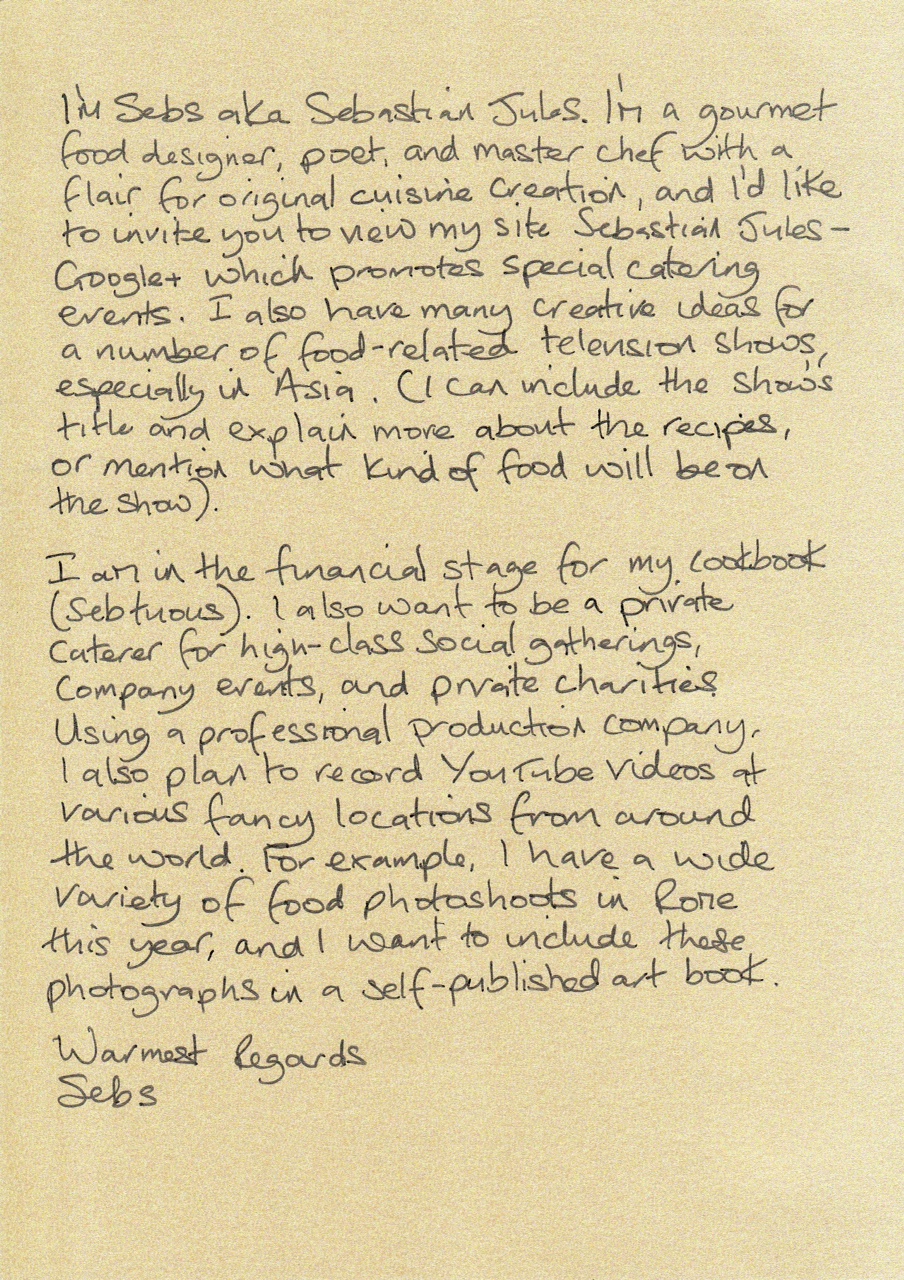 I'm Sebs aka Sebastian Jules. I'm a gourmet
food designer, poet, and master chef with a
flair for original cuisine creation, and I'd like
to invite you to view my site Sebastian Jules-
Google+ which promotes special catering
events. I also have many creative ideas for
a number of food-related telension shows,
especially in Asia. (I can include the show's
title and explain more about the recipes,
or mention what kind of food will be on
the show).
I am in the financial stage for my cookbook
(Sebtuous). I also want to be a private
caterer for high-class social gatherings,
company events, and private charities
Using a professional production company.
I also plan to record YouTube videos at
various fancy locations from around
the world. For example, I have a wide
variety of food photoshoots in Rome
this year, and I want to include these
photographs in a self-published art book.
Warmest Regards
Sebs